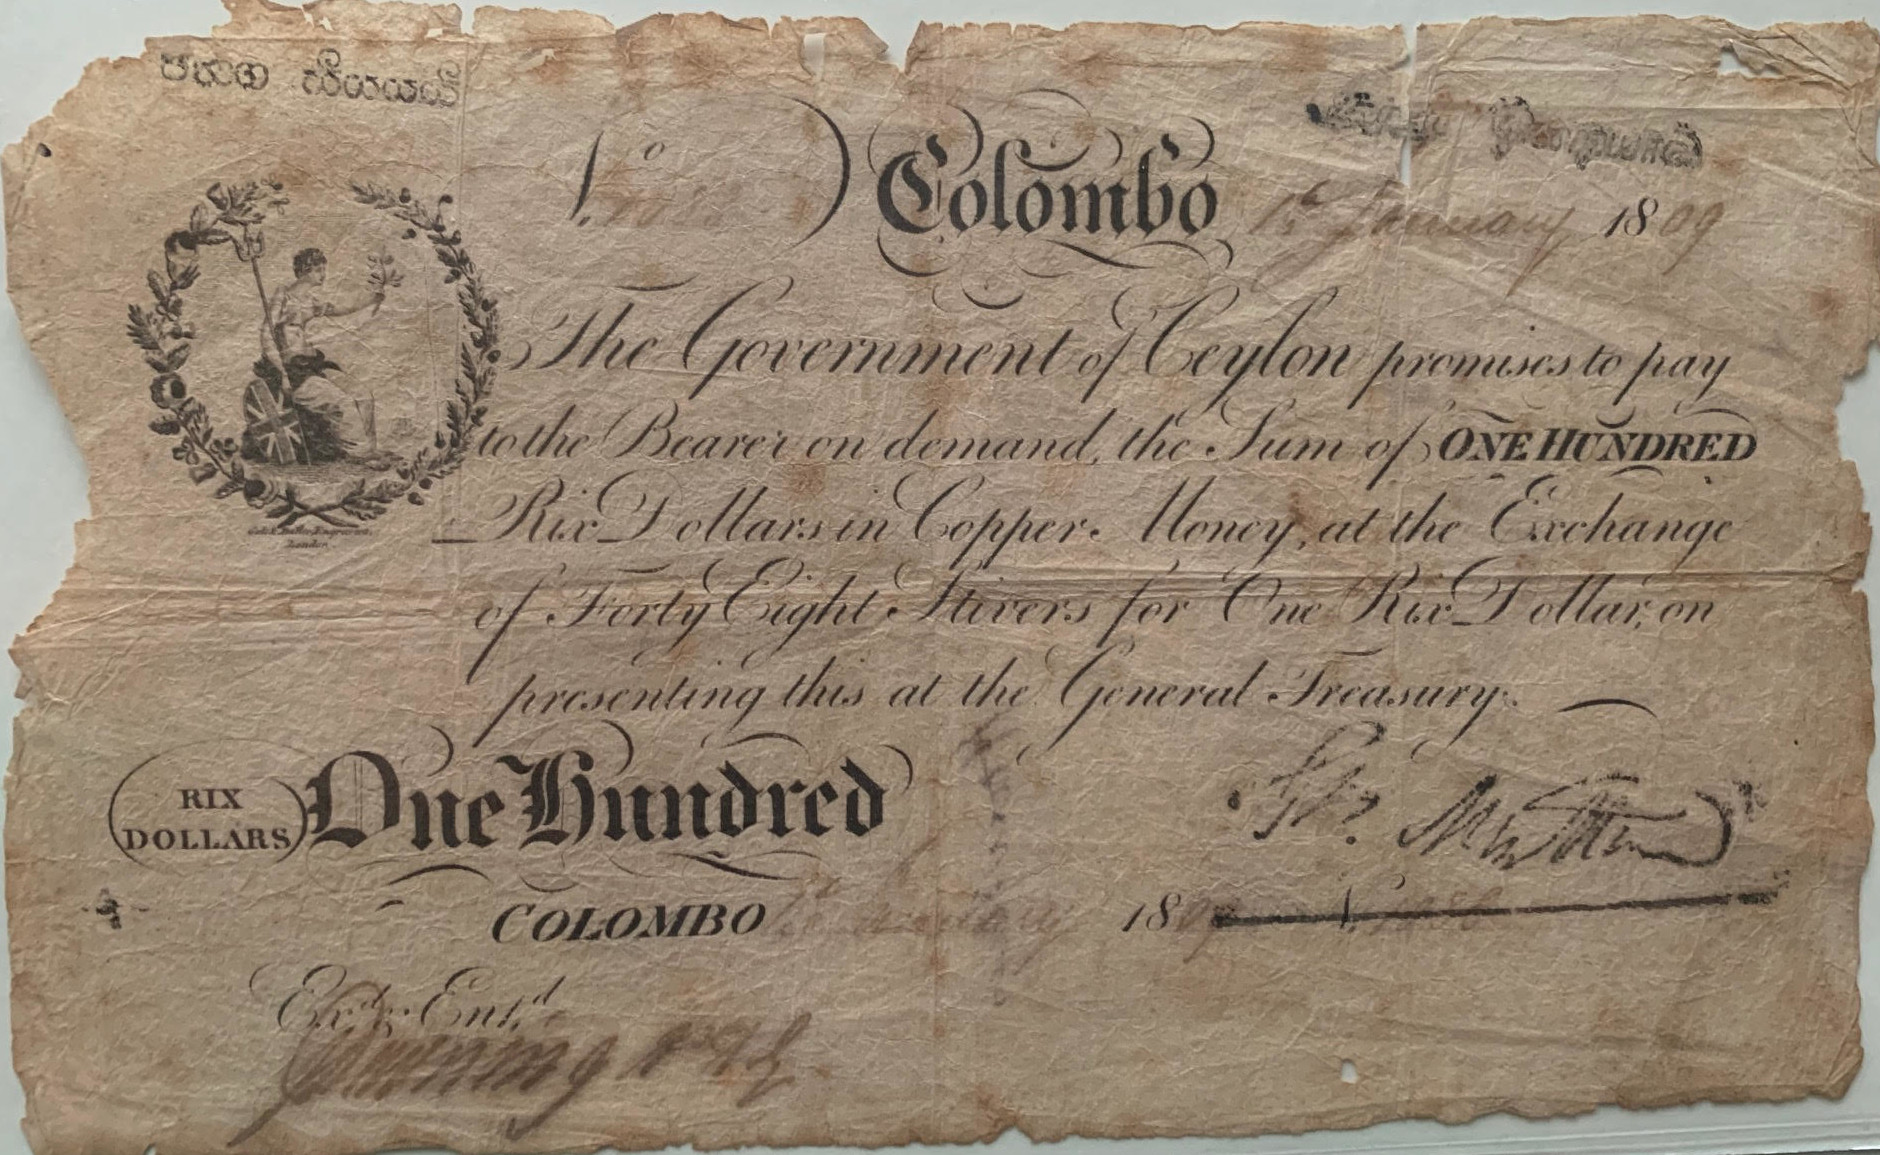 පතාක සියයයි
No
Colombo 1st January 1809
The Government of Ceylon promises to pay
to the Bearer on demand, the Sum of ONE HUNDRED
Rix Dollars in Copper Money, at the Exchange
of Forty Eight Stivers for One Rix Dollar, on
presenting this at the General Treasury.
RIX
DOLLARS
One Hundred
COLOMBO January 1809 No
Exd. & Entd.
London